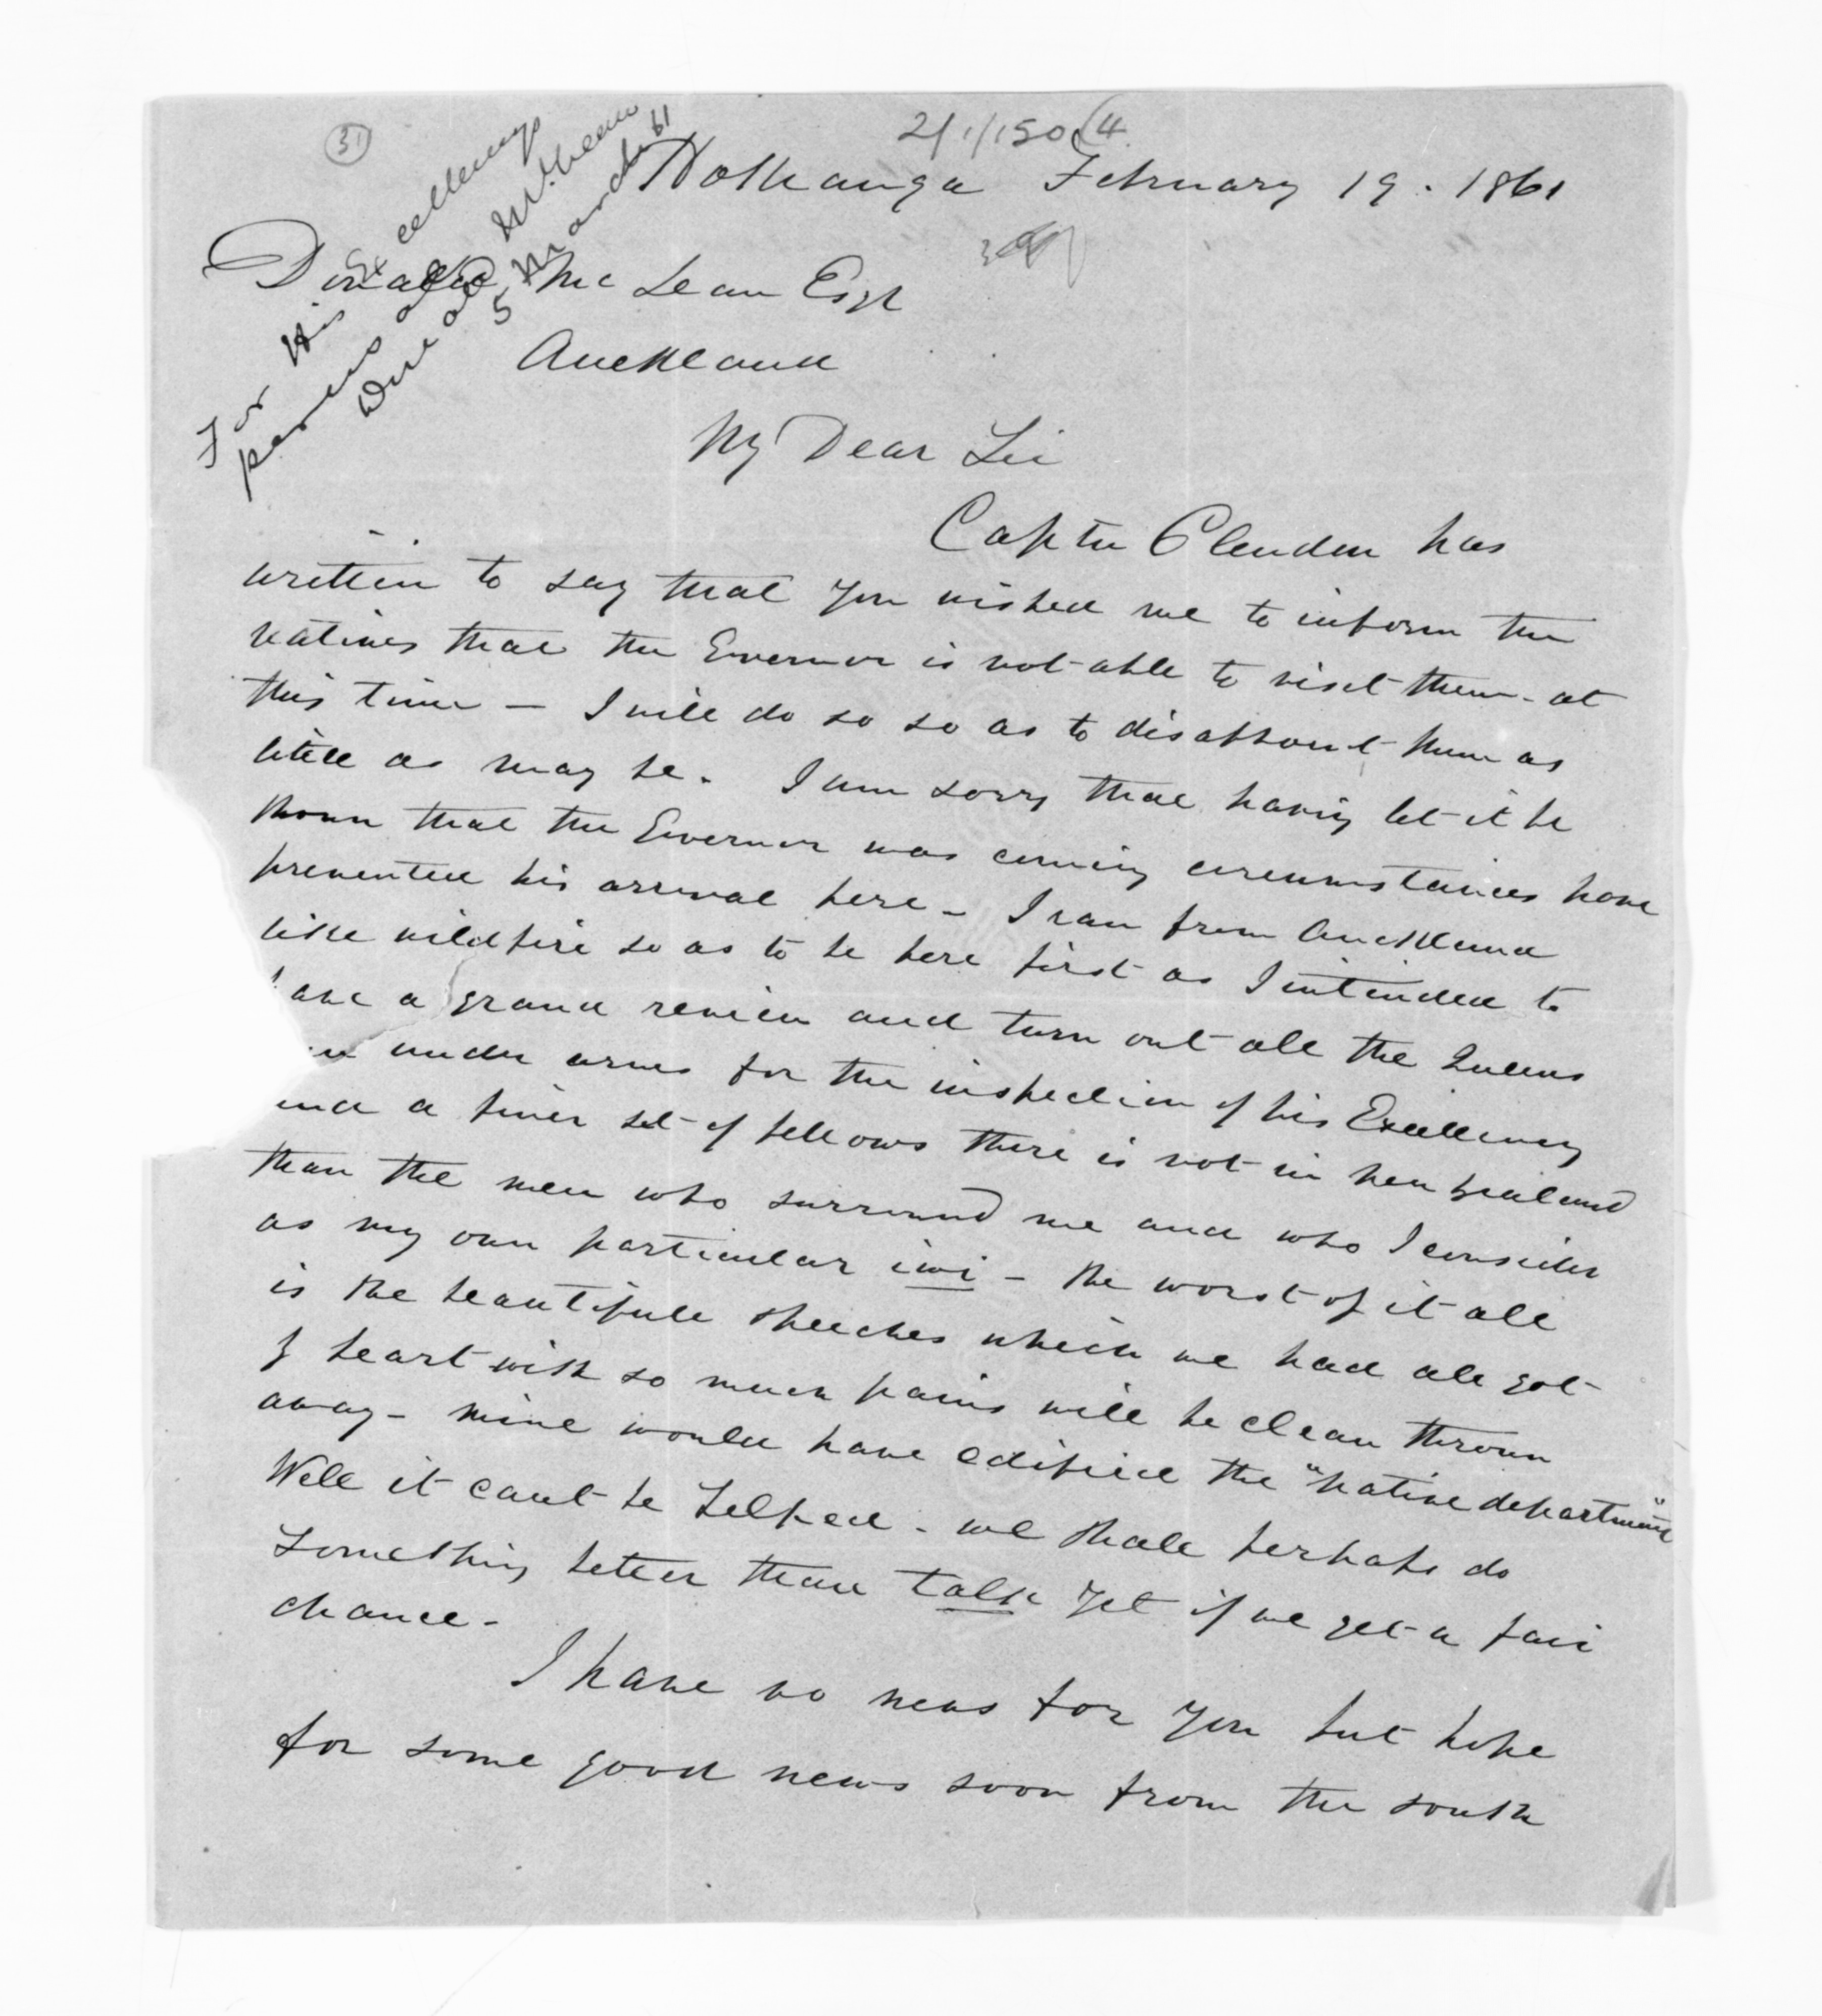 31
2/1/150 (4
Hokianga February 19. 1861
For His Excellencys
perusal
Donald McLean
5 March 61
Donald McLean Esqr
Auckland
My Dear Sir
Captn Clendon has
written to say that you wished me to inform the
natives that the Governor is not able to visit them at
this time — I will do so so as to disappoint them as
little as may be. I am sorry that having let it be
known that the Governor was coming circumstances have
prevented his arrival here – I ran from Auckland
like wildfire so as to be here first as I intended to
have a grand review and turn out all the Queens
under arms for the inspection of his Excellency
and a finer set of fellows there is not in New Zealand
than the men who surround me and who I consider
as my own particular iwi – the worst of it all
is the beautifull speeches which we had all got
by heart with so much pains will be clean thrown
away – mine would have edified the "native department"
Well it cant be helped – we shall perhaps do
something better than talk yet if we get a fair
chance –
I have no news for you but hope
for some good news soon from the south